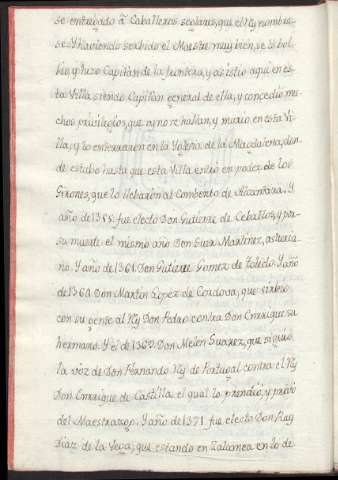 se entregado â Caballeros seglares, que el Rey nombra-
se. Y haviendo servido el Maestre muy bien, se le bol-
bio, y hizo Capitan de la frontera, y asistio aqui en es-
ta Villa siendo Capitan general de ella, y concedio mu-
chos privilegios, que aq no se hallan, y murio en esta Vi-
lla, y lo enterraron en la Yglesia de la Magdalena, don-
de estubo hasta que esta Villa entrò en poder de los
Girones, que lo llebaron al Combento de Alcantara. Y
año de 1355. fue electo Don Gutierre de Ceballos, y por
su muerte el mismo año Don Suer Martinez, asturia-
no. Y año de 1361. Don Gutierre Gomez de Toledo. Y año
de 1360. Don Martin Lopez de Cordova, que sirbio
con su gente al Rey Don Pedro contra Don Enrrique su
hermano. Y el de 1369. Don Melen Suarez, que siguiò
la voz de Don Fernando Rey de Portugal contra el Rey
Don Enrrique de Castilla, el qual lo prendiò, y privò
del Maestrazgo. Y año de 1371. fue electo Don Ruy
Diaz de la Vega, que estando en Zalamea en lo de